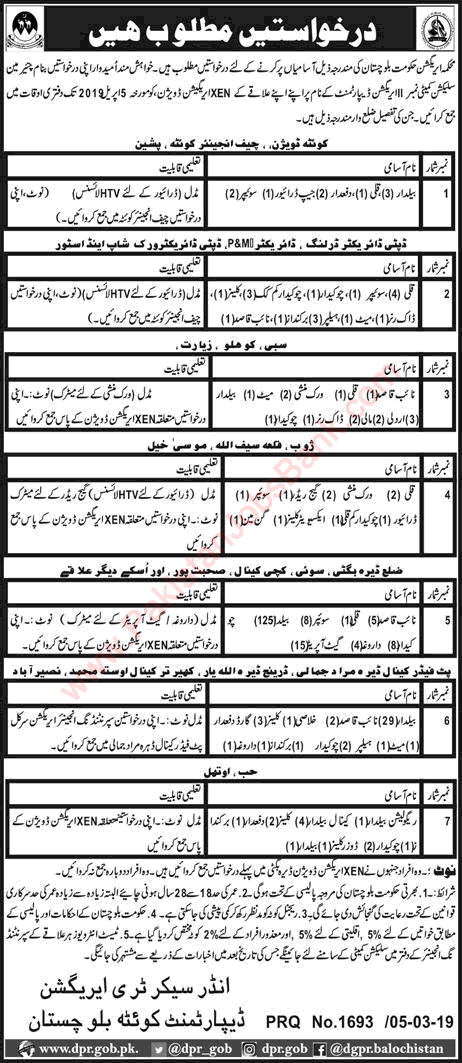 درخواستیں مطلوب ھیں
محکمہ ایریگیشن حکومت بلوچستان کی مندرجہ ذیل آسامیاں پر کرنے کے لئے درخواستیں مطلوب ہیں۔ خواہش مند اُمیدوار اپنی درخواستیں بنام چیئرمین
سلیکشن کمیٹی نمبر II ایریگیشن ڈیپارٹمنٹ کے نام پر اپنے اپنے علاقے کے XEN ایریگیشن ڈویژن، کو مورخہ 5 اپریل 2019 تک دفتری اوقات میں
جمع کرائیں۔ جن کی تفصیل ضلع وار مندرجہ ذیل ہے۔
کوئٹہ ڈویژن، چیف انجینئر کوئٹہ، پشین
نمبر شمار نام آسامی تعلیمی قابلیت
1 بیلدار (3)، قلی (1)، دفعدار (2) جیپ ڈرائیور (1) سوئپر (2) مڈل (ڈرائیور کے لئے HTV لائسنس) (نوٹ، اپنی
درخواستیں چیف انجینئر کوئٹہ میں جمع کروائیں۔)
ڈپٹی ڈائریکٹر ڈرلنگ، ڈائریکٹر P&M، ڈپٹی ڈائریکٹر ورک شاپ اینڈ اسٹور
نمبر شمار نام آسامی تعلیمی قابلیت
2 قلی (4)، سوئپر (1)، چوکیدار (1)، چوکیدار کم کک (3)، کلینر (1)، مڈل (ڈرائیور کے لئے HTV لائسنس) (نوٹ، اپنی درخواستیں
ڈاک رنر (1)، میٹ (1)، ہیلپر (3) برکنداز (1)، نائب قاصد (1) چیف انجینئر کوئٹہ میں جمع کروائیں۔)
سبی، کوھلو، زیارت،
نمبر شمار نام آسامی تعلیمی قابلیت
3 نائب قاصد (1) قلی (1) ورک منشی (2) میٹ (1) بیلدار مڈل (ورک منشی کے لئے میٹرک) نوٹ:۔ اپنی
(3) اردلی (2) مالی (2) ڈاک رنر (1) چوکیدار (1) درخواستیں متعلقہ XEN ایریگیشن ڈویژن کے پاس جمع کروائیں
ژوب، قلعہ سیف اللہ، موسیٰ خیل
نمبر شمار نام آسامی تعلیمی قابلیت
4 قلی (2) ورک منشی (2) گیج ریڈر (1) سوئپر (1) مڈل (ڈرائیور کے لئے HTV لائسنس) گیج ریڈر کے لئے میٹرک
ڈرائیور (1) چوکیدار کم قلی (1) ایکسیویٹر کلینر (1) گن مین (1) نوٹ:۔ اپنی درخواستیں متعلقہ XEN ایریگیشن ڈویژن کے پاس جمع
کروائیں
ضلع ڈیرہ بگٹی، سوئی، کچی کینال، صحبت پور، اور اُسکے دیگر علاقے
نمبر شمار نام آسامی تعلیمی قابلیت
5 نائب قاصد (5) قلی (1) سوئپر (8) بیلدار (125) چو مڈل (داروغہ / گیٹ آپریٹر کے لئے میٹرک) نوٹ:۔ اپنی
کیدار (8) داروغہ (4) گیٹ آپریٹر (15) درخواستیں متعلقہ XEN ایریگیشن ڈویژن کے پاس جمع کروائیں۔
پٹ فیڈر کینال ڈیرہ مراد جمالی، ڈرینج ڈیرہ اللہ یار، کھیر تر کینال اوستہ محمد، نصیر آباد
نمبر شمار نام آسامی تعلیمی قابلیت
6 بیلدار (29) نائب قاصد (2) خلاصی (1) کلینر (3) گارڈ دفعدار مڈل نوٹ:۔ اپنی درخواستیں سپرنٹنڈنگ انجینئر ایریگیشن سرکل
(1) میٹ (1) ہیلپر (2) چوکیدار (1) برکنداز (1) داروغہ (1) پٹ فیڈر کینال ڈیرہ مراد جمالی میں جمع کروائیں۔
حب، اوتھل
نمبر شمار نام آسامی تعلیمی قابلیت
7 ریگولیشن بیلدار (1) کینال بیلدار (4) کلینر (2) دفعدار (1) برکندا مڈل نوٹ:۔ اپنی درخواستیں متعلقہ XEN ایریگیشن ڈویژن کے
ز (1) چوکیدار (2) ڈوزر کلینر (1) بیلدار (1) پاس جمع کروائیں
نوٹ:۔ وہ افراد جنہوں نے XEN ایریگیشن ڈویژن ڈیرہ بگٹی میں پہلے درخواستیں جمع کرائیں ہیں۔ وہ افراد دوبارہ جمع نہ کرائیں۔
شرائط:۔ 1۔ بھرتی حکومت بلوچستان کی مروجہ پالیسی کے تحت ہوگی۔ 2۔ عمر کی حد 18 سے 28 سال ہونی چاہئے البتہ زیادہ سے زیادہ عمر کی حد سرکاری
قوانین کے تحت رعایت کی گنجائش دی جائے گی۔ 3۔ ریجنل کوٹہ کو مدنظر رکھ کر کمی بیشی کی جاسکتی ہے۔ 4۔ حکومت بلوچستان کے احکامات اور پالیسی کے
مطابق خواتین کے لئے 5%، اقلیتی کے لئے 5%، اور معذور افراد کے لئے 2% کوٹہ مختص کر دیا گیا ہے۔ 5۔ ٹیسٹ انٹرویوز ہر علاقے کے سپرنٹنڈ
نگ انجینئر کے دفتر میں سلیکشن کمیٹی کے سامنے لئے جائینگے جس کی تاریخ بعد میں اخبارات کے ذریعے سے مشتہر کی جائیگی۔
انڈر سیکرٹری ایریگیشن
ڈیپارٹمنٹ کوئٹہ بلوچستان
PRQ No.1693 /05-03-19
www.dpr.gob.pk. @dpr_gob @dgpr.balochistan
www.PakistanJobsBank.com